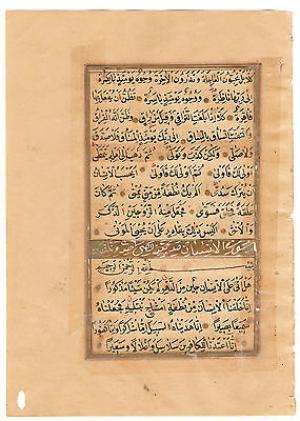 كلا بل تحبون العاجلة وتذرون الآخرة وجوه يومئذ ناضرة
إلى ربها ناظرة ووجوه يومئذ باسرة تظن أن يفعل بها
فاقرة كلا إذا بلغت التراقي وقيل من راق وظن أنه الفراق
والتفت الساق بالساق إلى ربك يومئذ المساق فلا صدق
ولا صلى ولكن كذب وتولى ثم ذهب إلى أهله يتمطى
أولى لك فأولى ثم أولى لك فأولى أيحسب الإنسان
أن يترك سدى ألم يك نطفة من مني يمنى ثم كان
علقة فخلق فسوى فجعل منه الزوجين الذكر
والأنثى أليس ذلك بقادر على أن يحيي الموتى
سورة الإنسان
بسم الله الرحمن الرحيم
هل أتى على الإنسان حين من الدهر لم يكن شيئا مذكورا
إنا خلقنا الإنسان من نطفة أمشاج نبتليه فجعلناه
سميعا بصيرا إنا هديناه السبيل إما شاكرا وإما كفورا
إنا أعتدنا للكافرين سلاسل وأغلالا وسعيرا